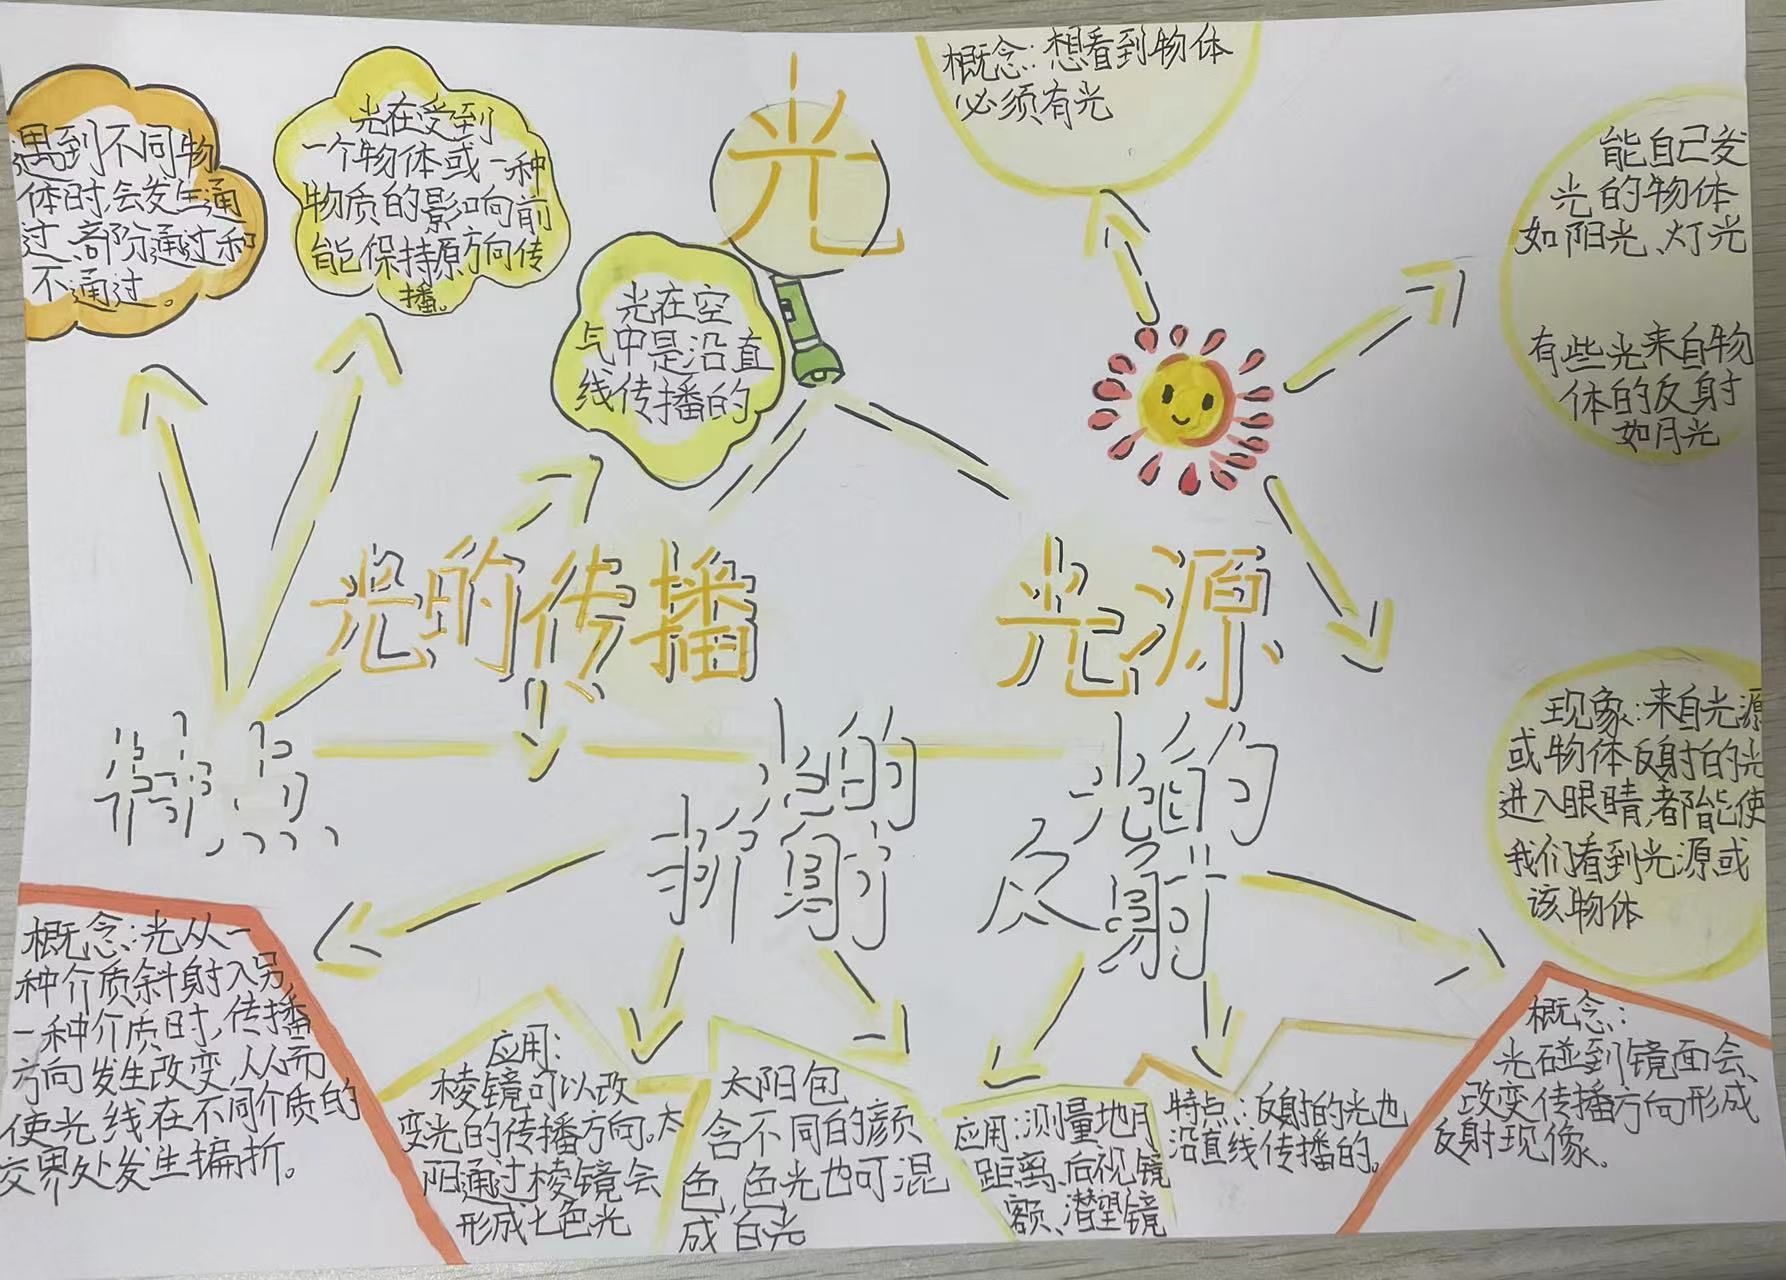 光
遇到不同物
体时,会发生通
过、部阶通过和
不通过。
光在受到
一个物体或一种
物质的影响向前
能保持原方向传
播。
光在空
气中是沿直
线传播的
概念:想看到物体
必须有光
能自己发
光的物体
如阳光、灯光
有些光来自物
体的反射
如月光
光的传播
光源
现象:来自光源
或物体反射的光
进入眼睛,都能使
我们看到光源或
该物体
特点
光的
折射
光的
反射
概念:光从一
种介质斜射入另
一种介质时,传播
方向发生改变,从而
使光线在不同介质的
交界处发生偏折。
应用:
棱镜可以改
变光的传播方向。太
阳通过棱镜会
形成七色光
太阳包
含不同的颜
色,色光也可混
成白光
应用:测量地月
距离、后视镜
额、潜望镜
特点:反射的光也
沿直线传播的。
概念:
光碰到镜面会
改变传播方向形成
反射现像。